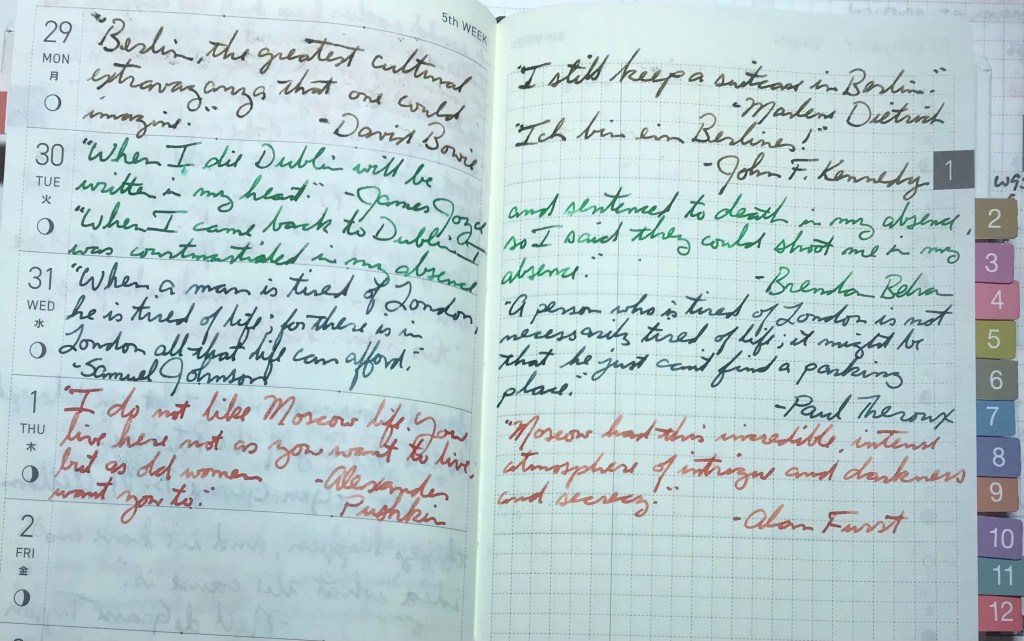 5th WEEK
29
MON
月
"Berlin, the greatest cultural
extravaganza that one could
imagine." -David Bowie
30
TUE
火
"When I die Dublin will be
written in my heart." -James Joyce
"When I came back to Dublin, I
was courtmartialed in my absence
31
WED
水
"When a man is tired of London,
he is tired of life; for there is in
London all that life can afford."
-Samuel Johnson
1
THU
木
"I do not like Moscow life. You
live here not as you want to live,
but as old women -Alexander
want you to." Pushkin
2
FRI
金
"I still keep a suitcase in Berlin."
-Marlene Dietrich
"Ich bin ein Berliner!"
-John F. Kennedy
and sentenced to death in my absence,
so I said they could shoot me in my
absence." -Brendan Behan
"A person who is tired of London is not
necessarily tired of life; it might be
that he just can't find a parking
place."
-Paul Theroux
"Moscow had this incredible, intense
atmosphere of intrigue and darkness
and secrecy."
-Alan Furst
1
2
3
4
5
6
7
8
9
10
11
12